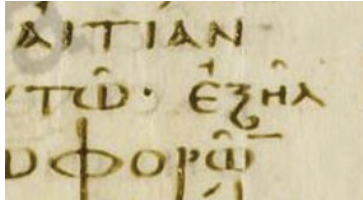 αἰτίαν
υτῶ· ἐξῆλ
υφορῶ